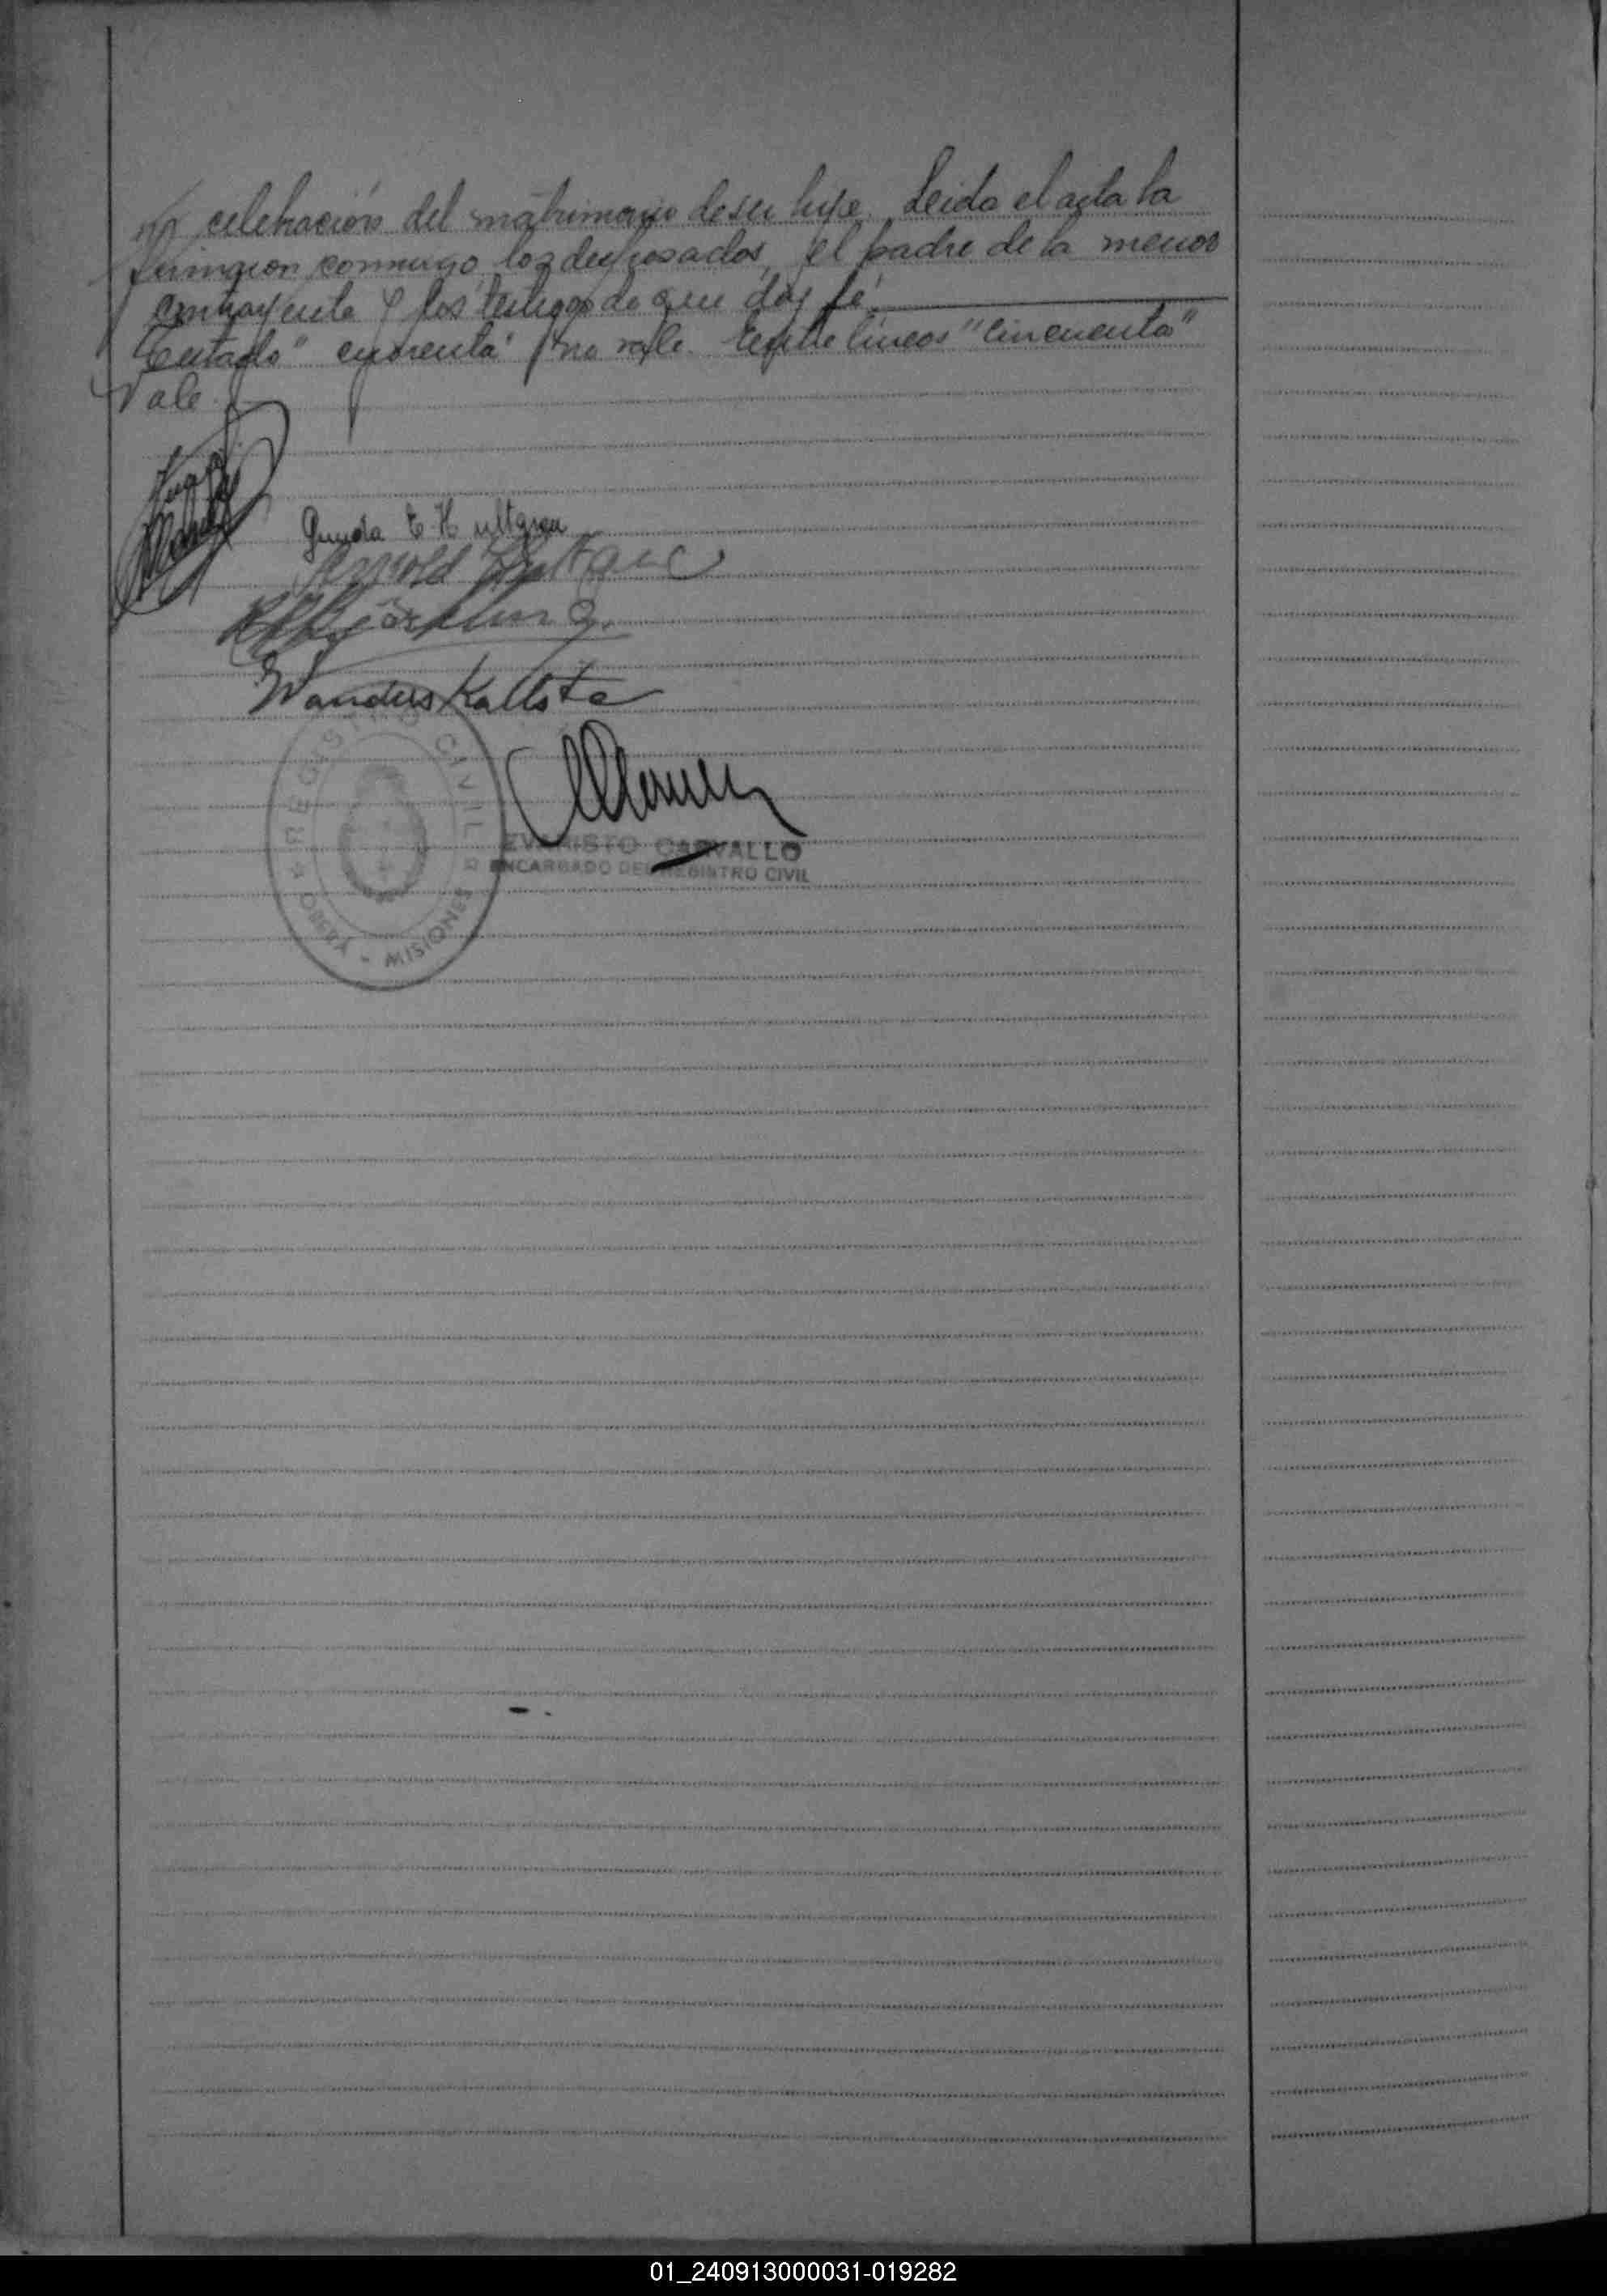 la celebración del matrimonio de su hija. Leida el acta la
firmaron conmigo los desposados, el padre de la menor
contrayente y los testigos de que doy fé.
Testado "cuarenta" no vale. Entre lineas "cincuenta"
Vale.
Gunda E. Hultgren
Arnold Hultgren
Wandus Kallste
REGISTRO CIVIL
OBERA - MISIONES
EVARISTO CARVALLO
ENCARGADO DEL REGISTRO CIVIL
01_240913000031-019282